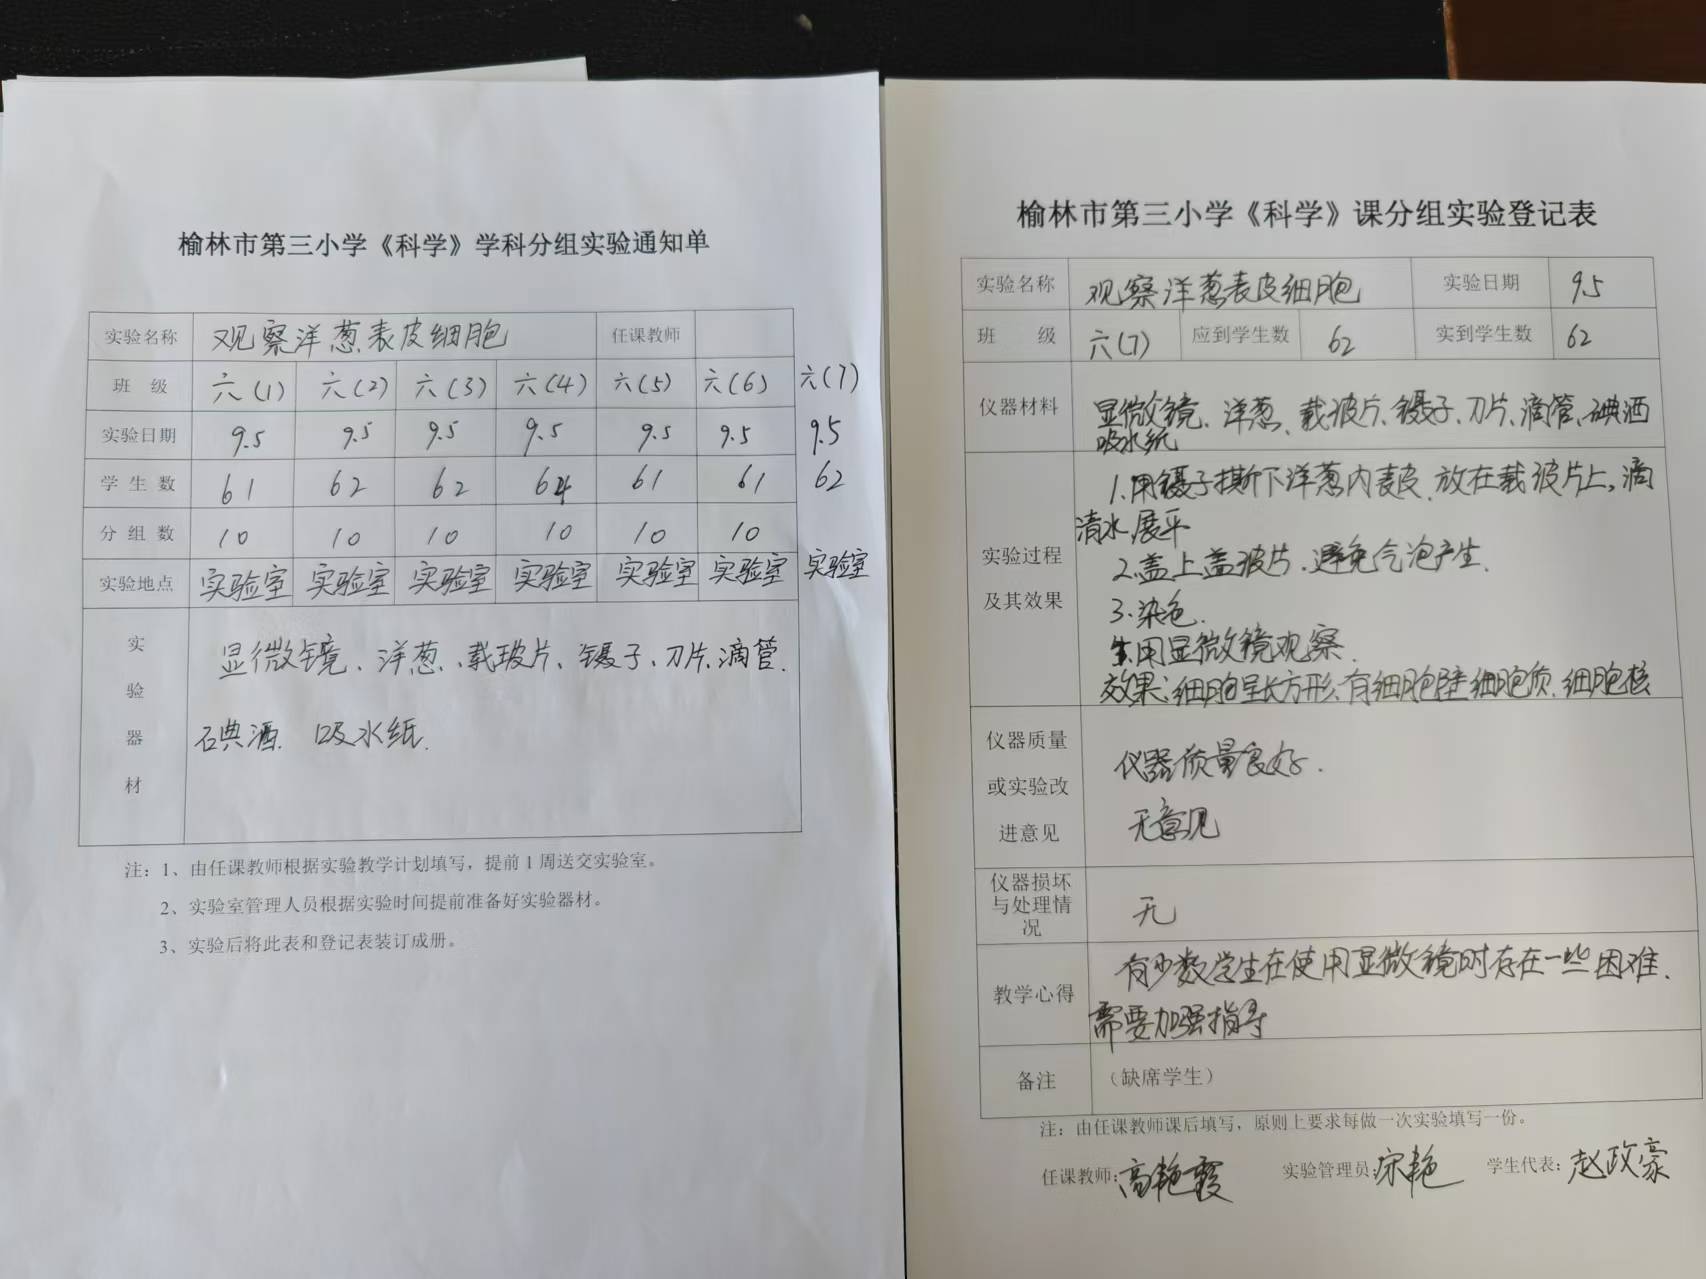 榆林市第三小学《科学》学科分组实验通知单
实验名称 观察洋葱表皮细胞 任课教师
班 级 六(1) 六(2) 六(3) 六(4) 六(5) 六(6) 六(7)
实验日期 9.5 9.5 9.5 9.5 9.5 9.5 9.5
学 生 数 61 62 62 64 61 61 62
分 组 数 10 10 10 10 10 10
实验地点 实验室 实验室 实验室 实验室 实验室 实验室 实验室
实验器材 显微镜、洋葱、载玻片、镊子、刀片、滴管.
碘酒. 吸水纸.
注：1、由任课教师根据实验教学计划填写，提前1周送交实验室。
2、实验室管理人员根据实验时间提前准备好实验器材。
3、实验后将此表和登记表装订成册。
榆林市第三小学《科学》课分组实验登记表
实验名称 观察洋葱表皮细胞 实验日期 9.5
班 级 六(7) 应到学生数 62 实到学生数 62
仪器材料 显微镜、洋葱、载玻片、镊子、刀片、滴管、碘酒
吸水纸
实验过程及其效果
1.用镊子撕下洋葱内表皮.放在载玻片上,滴
清水.展平
2.盖上盖玻片.避免气泡产生.
3.染色.
4.用显微镜观察.
效果:细胞呈长方形.有细胞壁.细胞质.细胞核
仪器质量或实验改进意见
仪器质量良好.
无意见
仪器损坏与处理情况 无
教学心得 有少数学生在使用显微镜时存在一些困难.
需要加强指导
备注 （缺席学生）
注：由任课教师课后填写，原则上要求每做一次实验填写一份。
任课教师:高艳霞 实验管理员:宋艳 学生代表:赵政豪